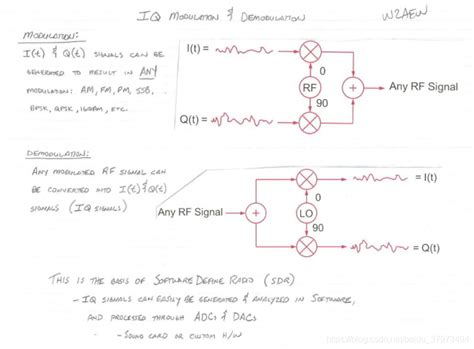 IQ MODULATION & DEMODULATION
W2AEW
MODULATION:
I(t) & Q(t) SIGNALS CAN BE
GENERATED TO RESULT IN ANY
MODULATION: AM, FM, PM, SSB,
BPSK, QPSK, 16QAM, ETC.
I(t) =
0
RF
90
+
Any RF Signal
Q(t) =
DEMODULATION:
ANY MODULATED RF SIGNAL CAN
BE CONVERTED INTO I(t) & Q(t)
SIGNALS (IQ SIGNALS)
= I(t)
0
Any RF Signal
+
LO
90
= Q(t)
THIS IS THE BASIS OF SOFTWARE DEFINE RADIO (SDR)
- IQ SIGNALS CAN EASILY BE GENERATED & ANALYZED IN SOFTWARE,
AND PROCESSED THROUGH ADCs & DACs
- SOUND CARD OR CUSTOM H/W